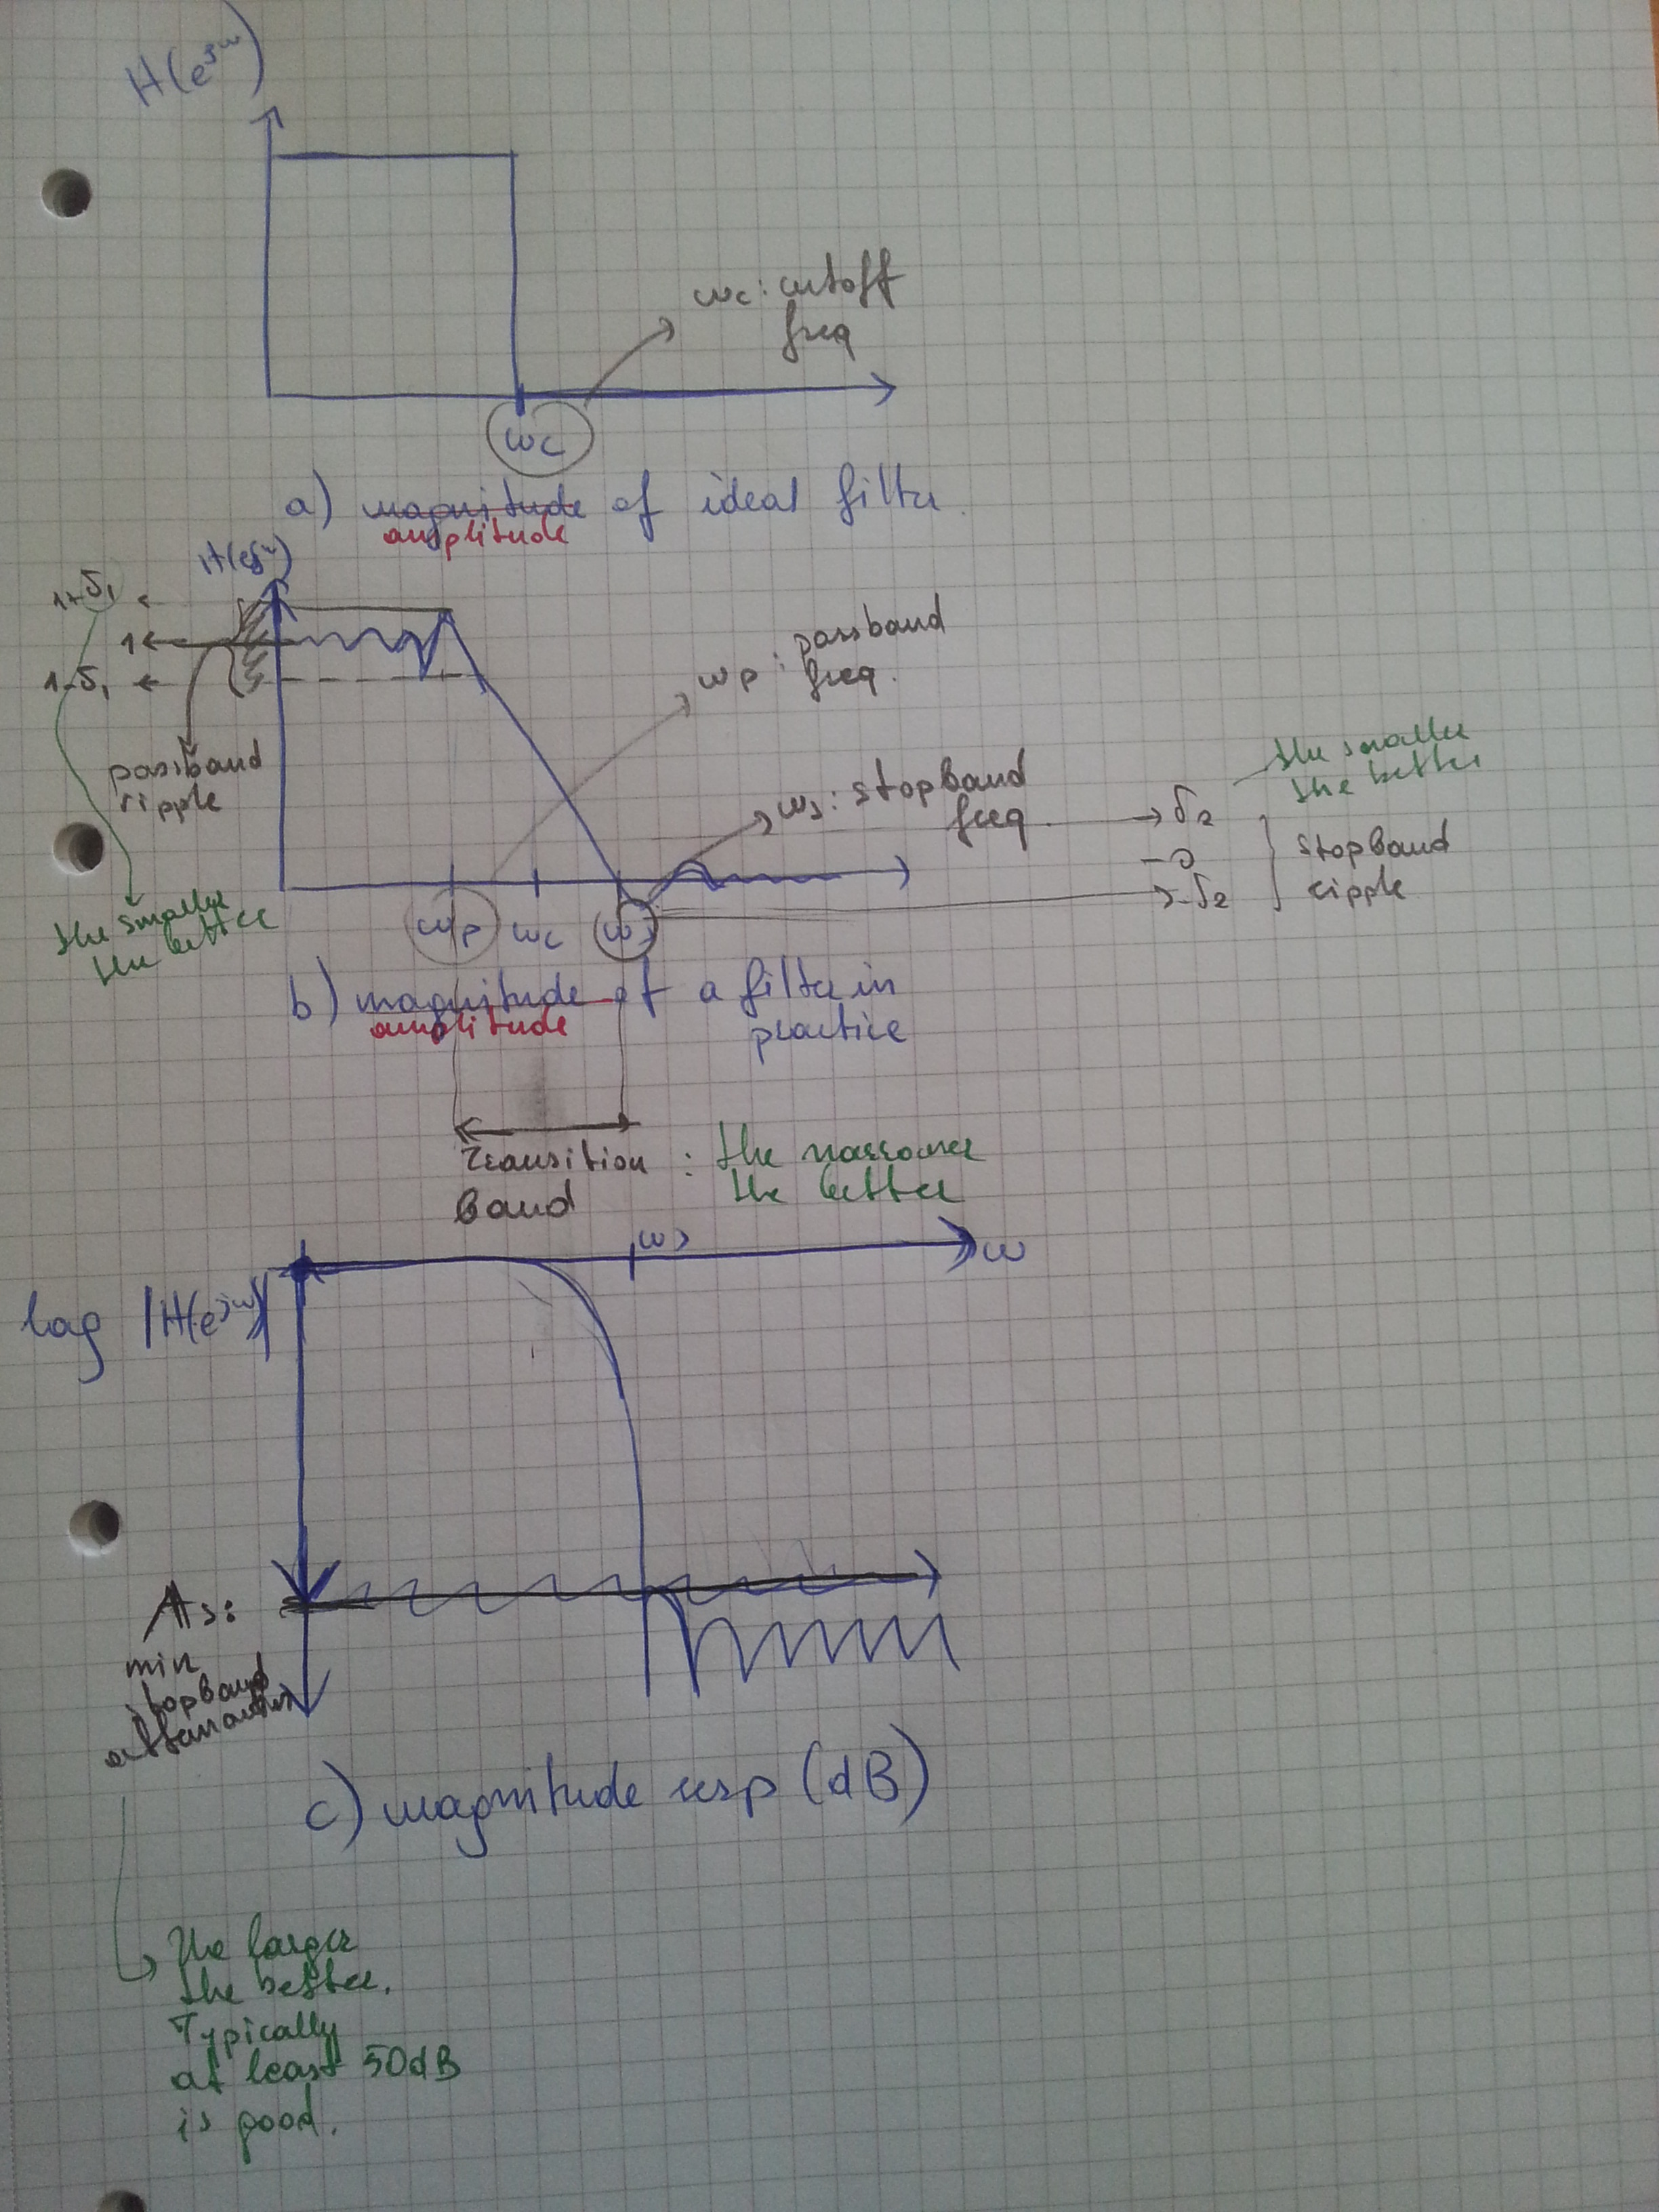 H(e^jω)
ωc: cutoff
freq
ωc
a) magnitude of ideal filter
amplitude
H(e^jω)
1+δ₁
1
1-δ₁
passband
ripple
the smaller
the better
ωp: passband
freq.
ωs: stopband
freq
δ₂
0
-δ₂
the smaller
the better
stopband
ripple
ωp ωc ωs
b) magnitude of a filter in
practice
amplitude
transition
band
: the narrower
the better
ωs
ω
log |H(e^jω)|
As:
min
stopband
attenuation
c) magnitude resp (dB)
The larger
the better.
Typically
at least 50dB
is good.